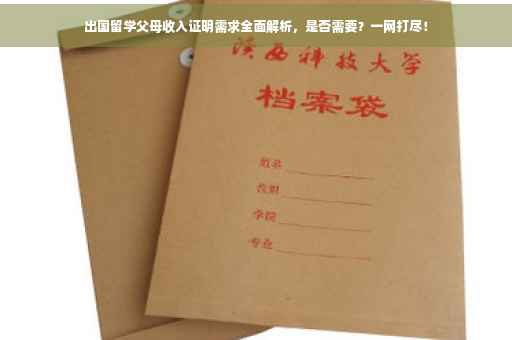 出国留学父母收入证明需求全面解析，是否需要？一网打尽！
陕西科技大学
档案袋
姓名
学院
专业